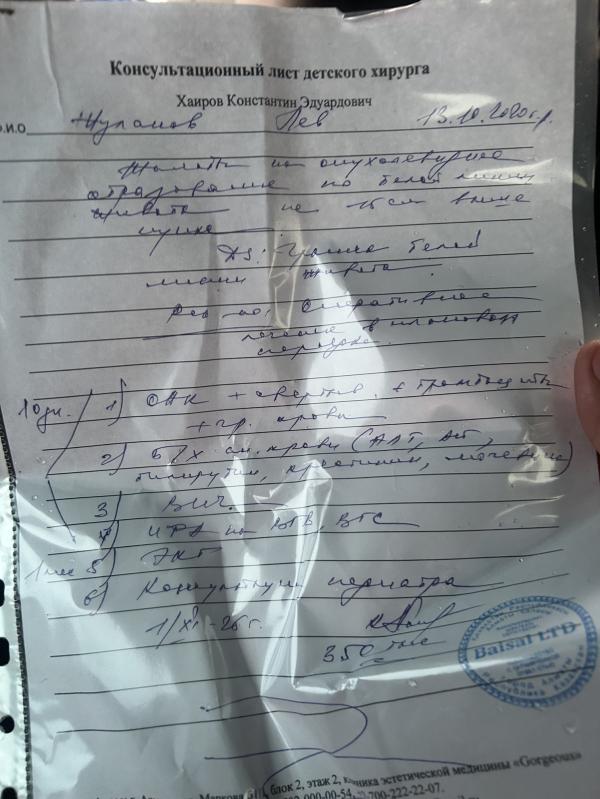 Консультационный лист детского хирурга
Хаиров Константин Эдуардович
Ф.И.О Жуланов Лев 13.10.2020 г.р.
Жалобы на опухолевидное
образование по белой линии
живота на см выше
пупка
Дз: Грыжа белой
линии живота.
Рек-но: Оперативное
лечение в плановом
порядке.
10 дн. 1) ОАК + сверт + тромбоциты
+ гр. крови
2) Б/х ан. крови (АЛТ, АСТ,
билирубин, креатинин, мочевина)
3 ВИЧ.
4) на ВГВ, ВГС
1 мес 5) ЭКГ
6) Консультация педиатра
350 тыс
Baisal LTD
блок 2, этаж 2, клиника эстетической медицины «Gorgeous»
000-00-54, 700-222-22-07.